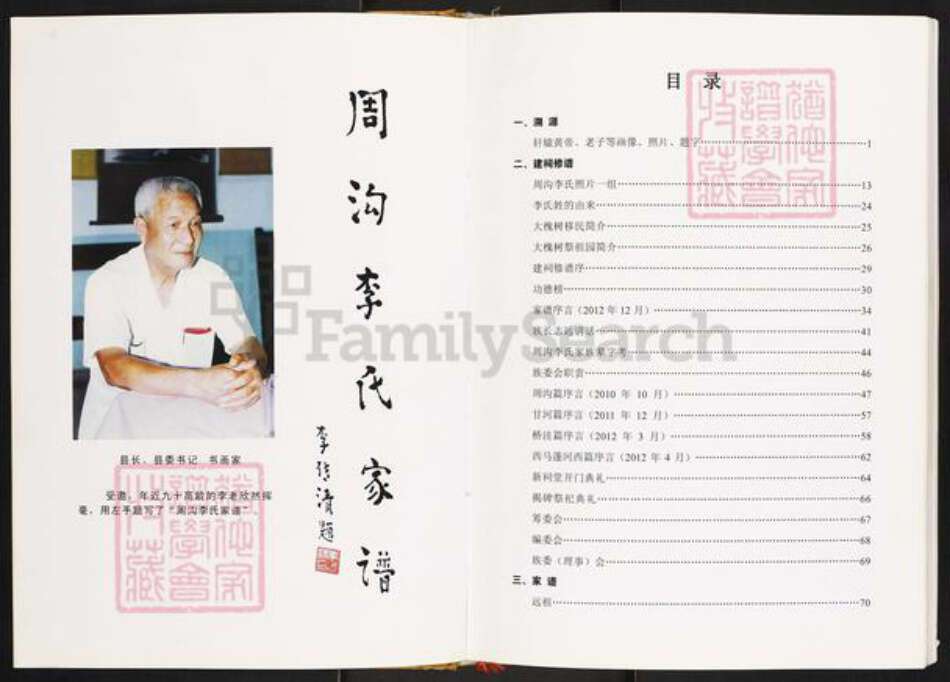 周沟李氏家谱
李传清题
县长、县委书记 书画家
受邀，年近九十高龄的李老欣然挥
毫，用左手题写了“周沟李氏家谱”。
FamilySearch
目 录
一、溯 源
轩辕黄帝、老子等画像、照片、题字……1
二、建祠修谱
周沟李氏照片一组……13
李氏姓的由来……24
大槐树移民简介……25
大槐树祭祖园简介……26
建祠修谱序……29
功德榜……30
家谱序言（2012年12月）……34
族长志远讲话……41
周沟李氏家族辈字考……44
族委会职责……46
周沟篇序言（2010 年 10 月）……47
甘河篇序言（2011 年 12 月）……57
桥洼篇序言（2012 年 3 月）……58
四马蓬河西篇序言（2012 年 4 月）……62
新祠堂开门典礼……64
揭碑祭祀典礼……66
筹委会……67
编委会……68
族委（理事）会……69
三、家 谱
远祖……70